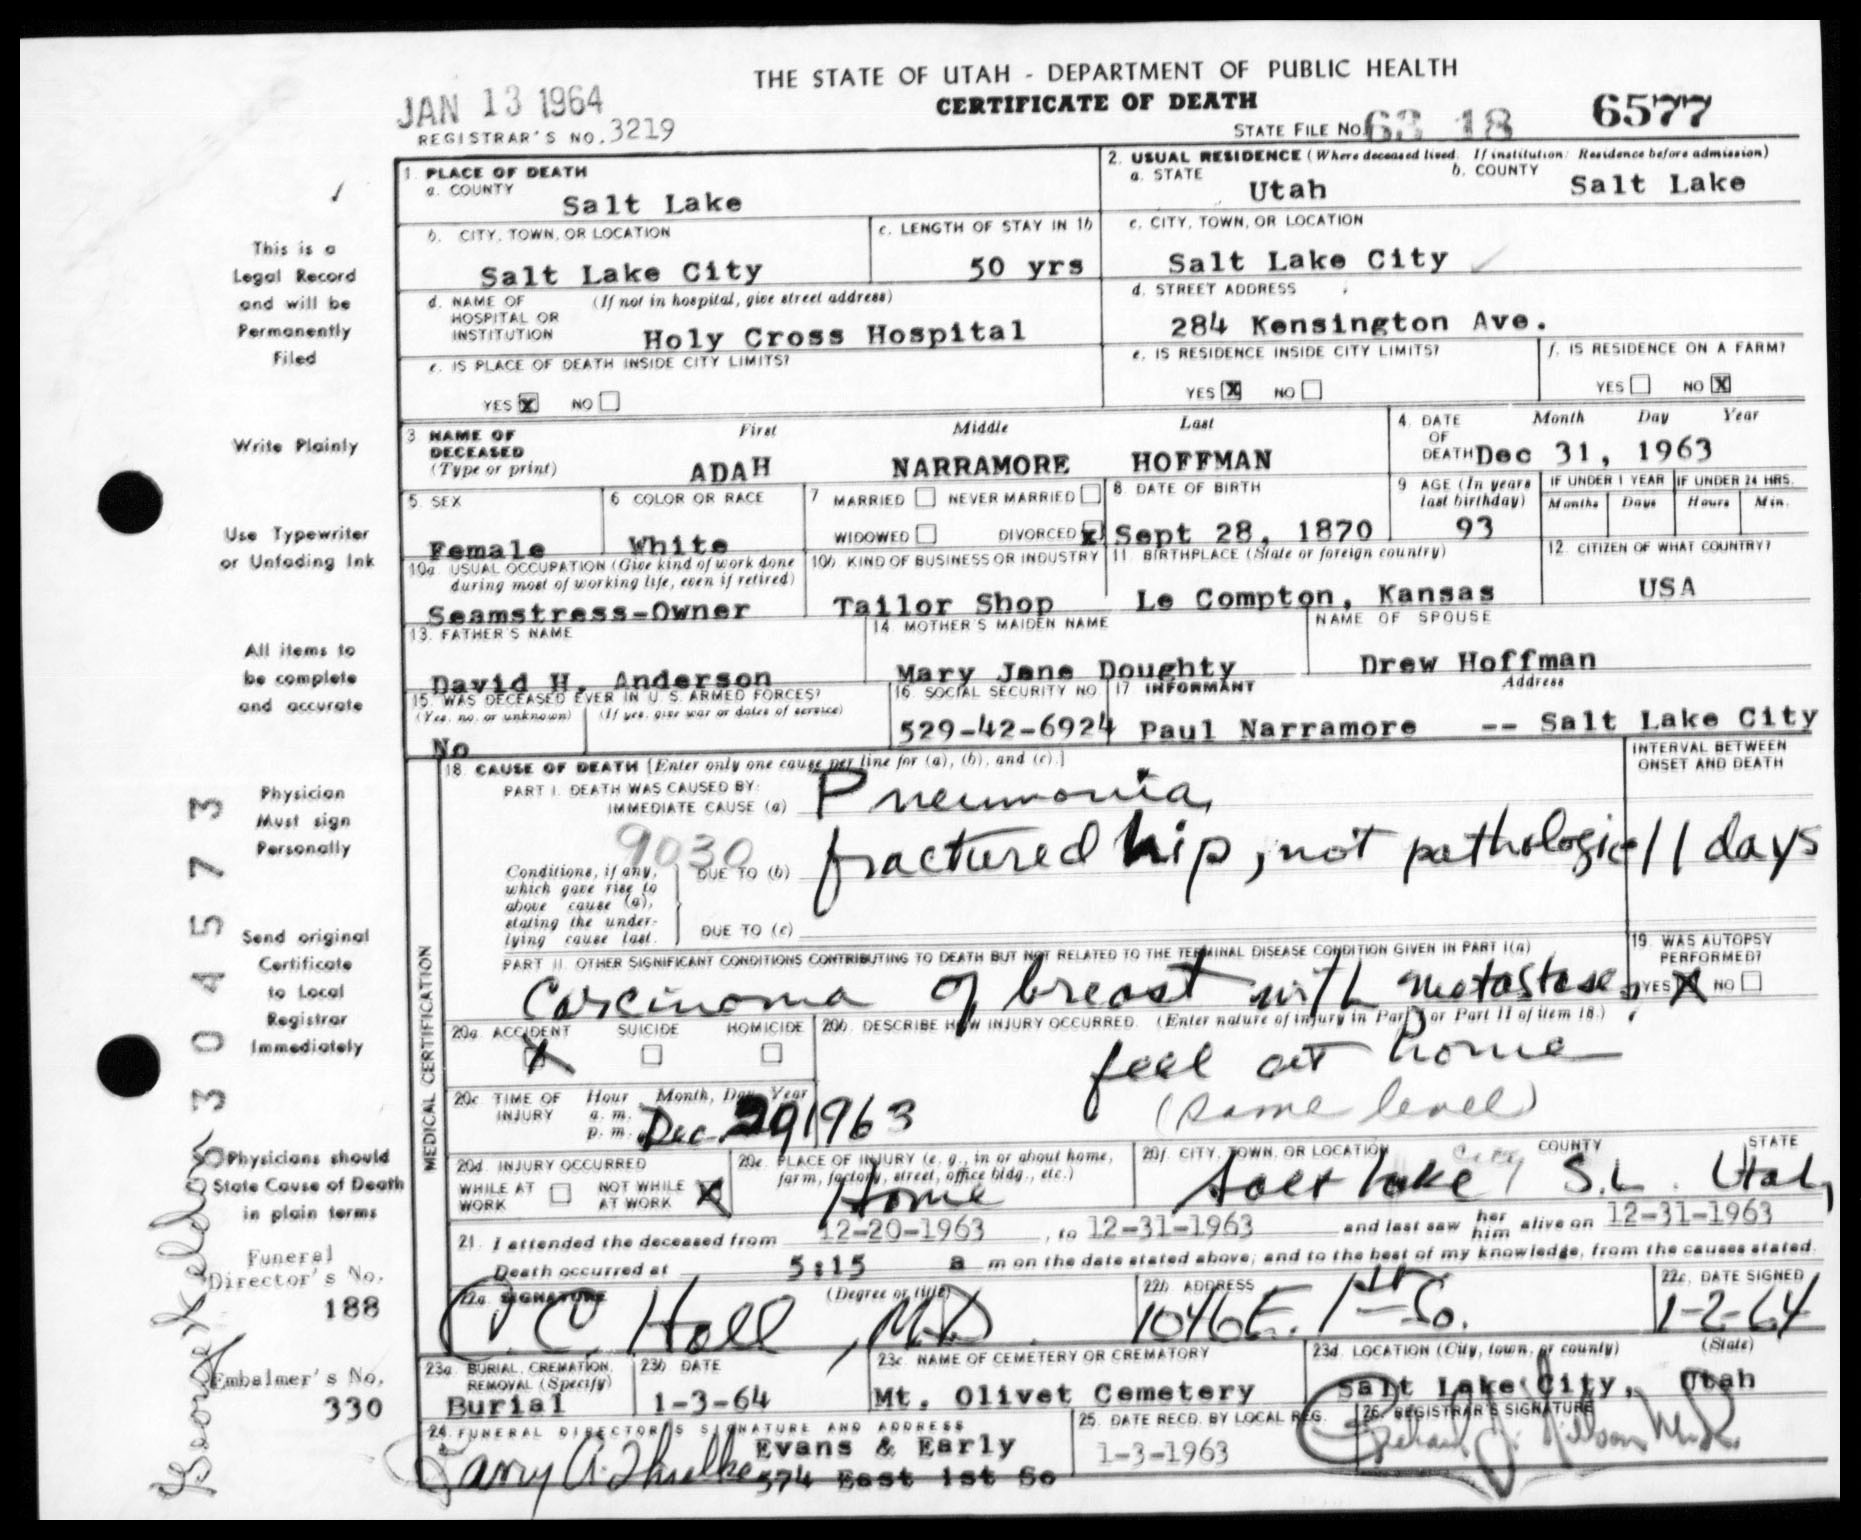 THE STATE OF UTAH - DEPARTMENT OF PUBLIC HEALTH
CERTIFICATE OF DEATH
JAN 13 1964
REGISTRAR'S NO. 3219
STATE FILE NO. 63 18 6577
1. PLACE OF DEATH
a. COUNTY
Salt Lake
2. USUAL RESIDENCE (Where deceased lived. If institution: Residence before admission)
a. STATE
Utah
b. COUNTY
Salt Lake
b. CITY, TOWN, OR LOCATION
Salt Lake City
c. LENGTH OF STAY IN 1b
50 yrs
c. CITY, TOWN, OR LOCATION
Salt Lake City
d. NAME OF HOSPITAL OR INSTITUTION
(If not in hospital, give street address)
Holy Cross Hospital
d. STREET ADDRESS
284 Kensington Ave.
e. IS PLACE OF DEATH INSIDE CITY LIMITS?
YES X NO
e. IS RESIDENCE INSIDE CITY LIMITS?
YES X NO
f. IS RESIDENCE ON A FARM?
YES NO X
3. NAME OF DECEASED (Type or print)
First Middle Last
ADAH NARRAMORE HOFFMAN
4. DATE OF DEATH
Month Day Year
Dec 31, 1963
5. SEX
Female
6 COLOR OR RACE
White
7 MARRIED NEVER MARRIED
WIDOWED DIVORCED X
8. DATE OF BIRTH
Sept 28, 1870
9 AGE (In years last birthday)
93
IF UNDER 1 YEAR
Months Days
IF UNDER 24 HRS.
Hours Min.
10a. USUAL OCCUPATION (Give kind of work done during most of working life, even if retired)
Seamstress-Owner
10b. KIND OF BUSINESS OR INDUSTRY
Tailor Shop
11. BIRTHPLACE (State or foreign country)
Le Compton, Kansas
12. CITIZEN OF WHAT COUNTRY?
USA
13. FATHER'S NAME
David H. Anderson
14. MOTHER'S MAIDEN NAME
Mary Jane Doughty
NAME OF SPOUSE
Drew Hoffman
15. WAS DECEASED EVER IN U.S. ARMED FORCES?
(Yes, no, or unknown) (If yes, give war or dates of service)
No
16. SOCIAL SECURITY NO.
529-42-6924
17 INFORMANT
Address
Paul Narramore -- Salt Lake City
MEDICAL CERTIFICATION
18. CAUSE OF DEATH [Enter only one cause per line for (a), (b), and (c).]
INTERVAL BETWEEN ONSET AND DEATH
PART I. DEATH WAS CAUSED BY:
IMMEDIATE CAUSE (a) Pneumonia,
9030
Conditions, if any, which gave rise to above cause (a), stating the underlying cause last.
DUE TO (b) fractured hip, not pathologic 11 days
DUE TO (c)
PART II. OTHER SIGNIFICANT CONDITIONS CONTRIBUTING TO DEATH BUT NOT RELATED TO THE TERMINAL DISEASE CONDITION GIVEN IN PART I(a)
Carcinoma of breast with metastases
19. WAS AUTOPSY PERFORMED?
YES X NO
20a. ACCIDENT SUICIDE HOMICIDE
X
20b. DESCRIBE HOW INJURY OCCURRED. (Enter nature of injury in Part I or Part II of item 18.)
feel at home
(same level)
20c TIME OF INJURY
Hour Month, Day, Year
a. m.
p. m.
Dec. 20 1963
20d. INJURY OCCURRED
WHILE AT WORK NOT WHILE AT WORK X
20e. PLACE OF INJURY (e. g., in or about home, farm, factory, street, office bldg., etc.)
Home
20f. CITY, TOWN, OR LOCATION COUNTY STATE
Salt Lake City, S.L. Utah
21. I attended the deceased from 12-20-1963, to 12-31-1963 and last saw her him alive on 12-31-1963
Death occurred at 5:15 a m on the date stated above; and to the best of my knowledge, from the causes stated.
22a. SIGNATURE (Degree or title)
C. C. Hall, M.D.
22b ADDRESS
1046 E. 1st So.
22c. DATE SIGNED
1-2-64
23a. BURIAL, CREMATION, REMOVAL (Specify)
Burial
23b DATE
1-3-64
23c. NAME OF CEMETERY OR CREMATORY
Mt. Olivet Cemetery
23d. LOCATION (City, town, or county) (State)
Salt Lake City, Utah
24. FUNERAL DIRECTOR'S SIGNATURE AND ADDRESS
Evans & Early
574 East 1st So
25. DATE RECD. BY LOCAL REG.
1-3-1963
26. REGISTRAR'S SIGNATURE
This is a
Legal Record
and will be
Permanently
Filed
Write Plainly
Use Typewriter
or Unfading Ink
All items to
be complete
and accurate
Physician
Must sign
Personally
Send original
Certificate
to Local
Registrar
Immediately
Physicians should
State Cause of Death
in plain terms
Funeral
Director's No.
188
Embalmer's No.
330
3045573